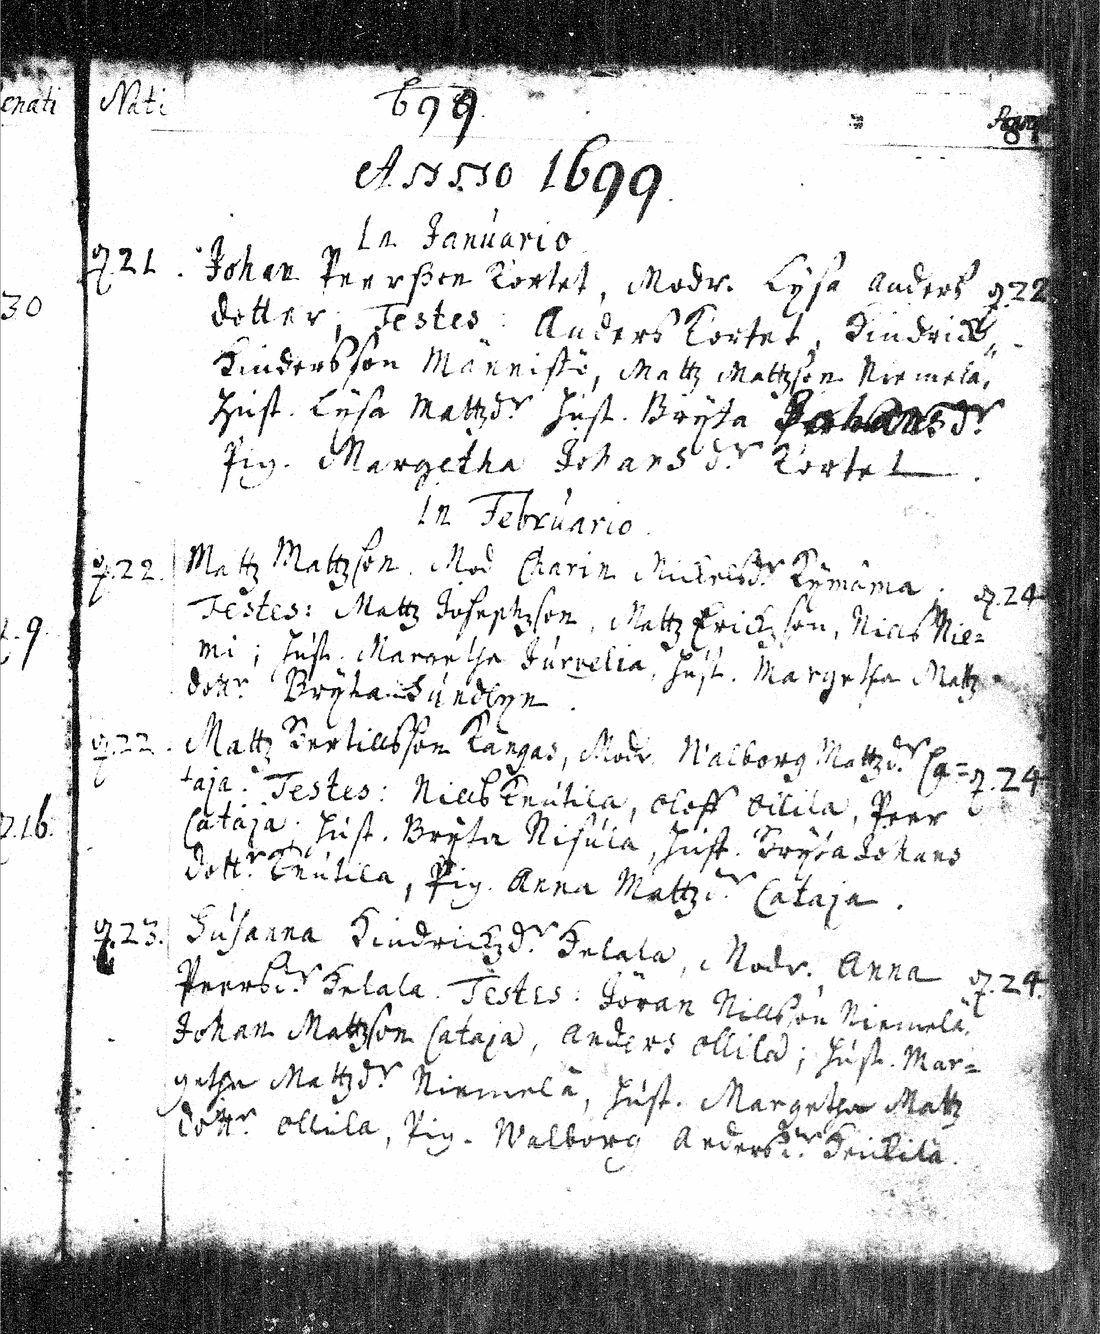 enati Nati 1699
Anno 1699
In Januario
30
q.21. Johan Peersson Kortet, Modr. Lysa Anders q.22
dotter, Testes: Anders Kortet, Hindrich
Hindersson Männistö, Mattz Mattzson Niemelä,
Hust. Lysa Mattzdr Hust. Bryta Johansdr
Pig. Margetha Johansdr Kortet.
In Februario.
q.22. Mattz Mattzson. Mod Charin Michelsdr Kymäma. q.24
Testes: Mattz Josephzson, Mattz Erichzson, Nills Nie=
9. mi; Hust. Margetha Jurvelia, Hust. Margetha Mattz
dottr Bryta Sundlyn.
q.22. Mattz Bertillsson Kangas, Modr. Walborg Mattzdr Ca= q.24
taja. Testes: Nills Knutila, Oloff Ollila, Peer
q.16. Cataja. Hust. Bryta Nisula, Hust. Bryta Johans
dottr Knutila, Pig. Anna Mattzdr Cataja.
q.23. Susanna Hindrichzdr Helala, Modr. Anna q.24.
Peersdr Helala. Testes: Jöran Nillsson Niemelä.
Johan Mattzson Cataja, Anders Ollila; Hust. Mar=
getha Mattzdr Niemelä, Hust. Margetha Mattz
dottr Ollila, Pig. Walborg Andersdr